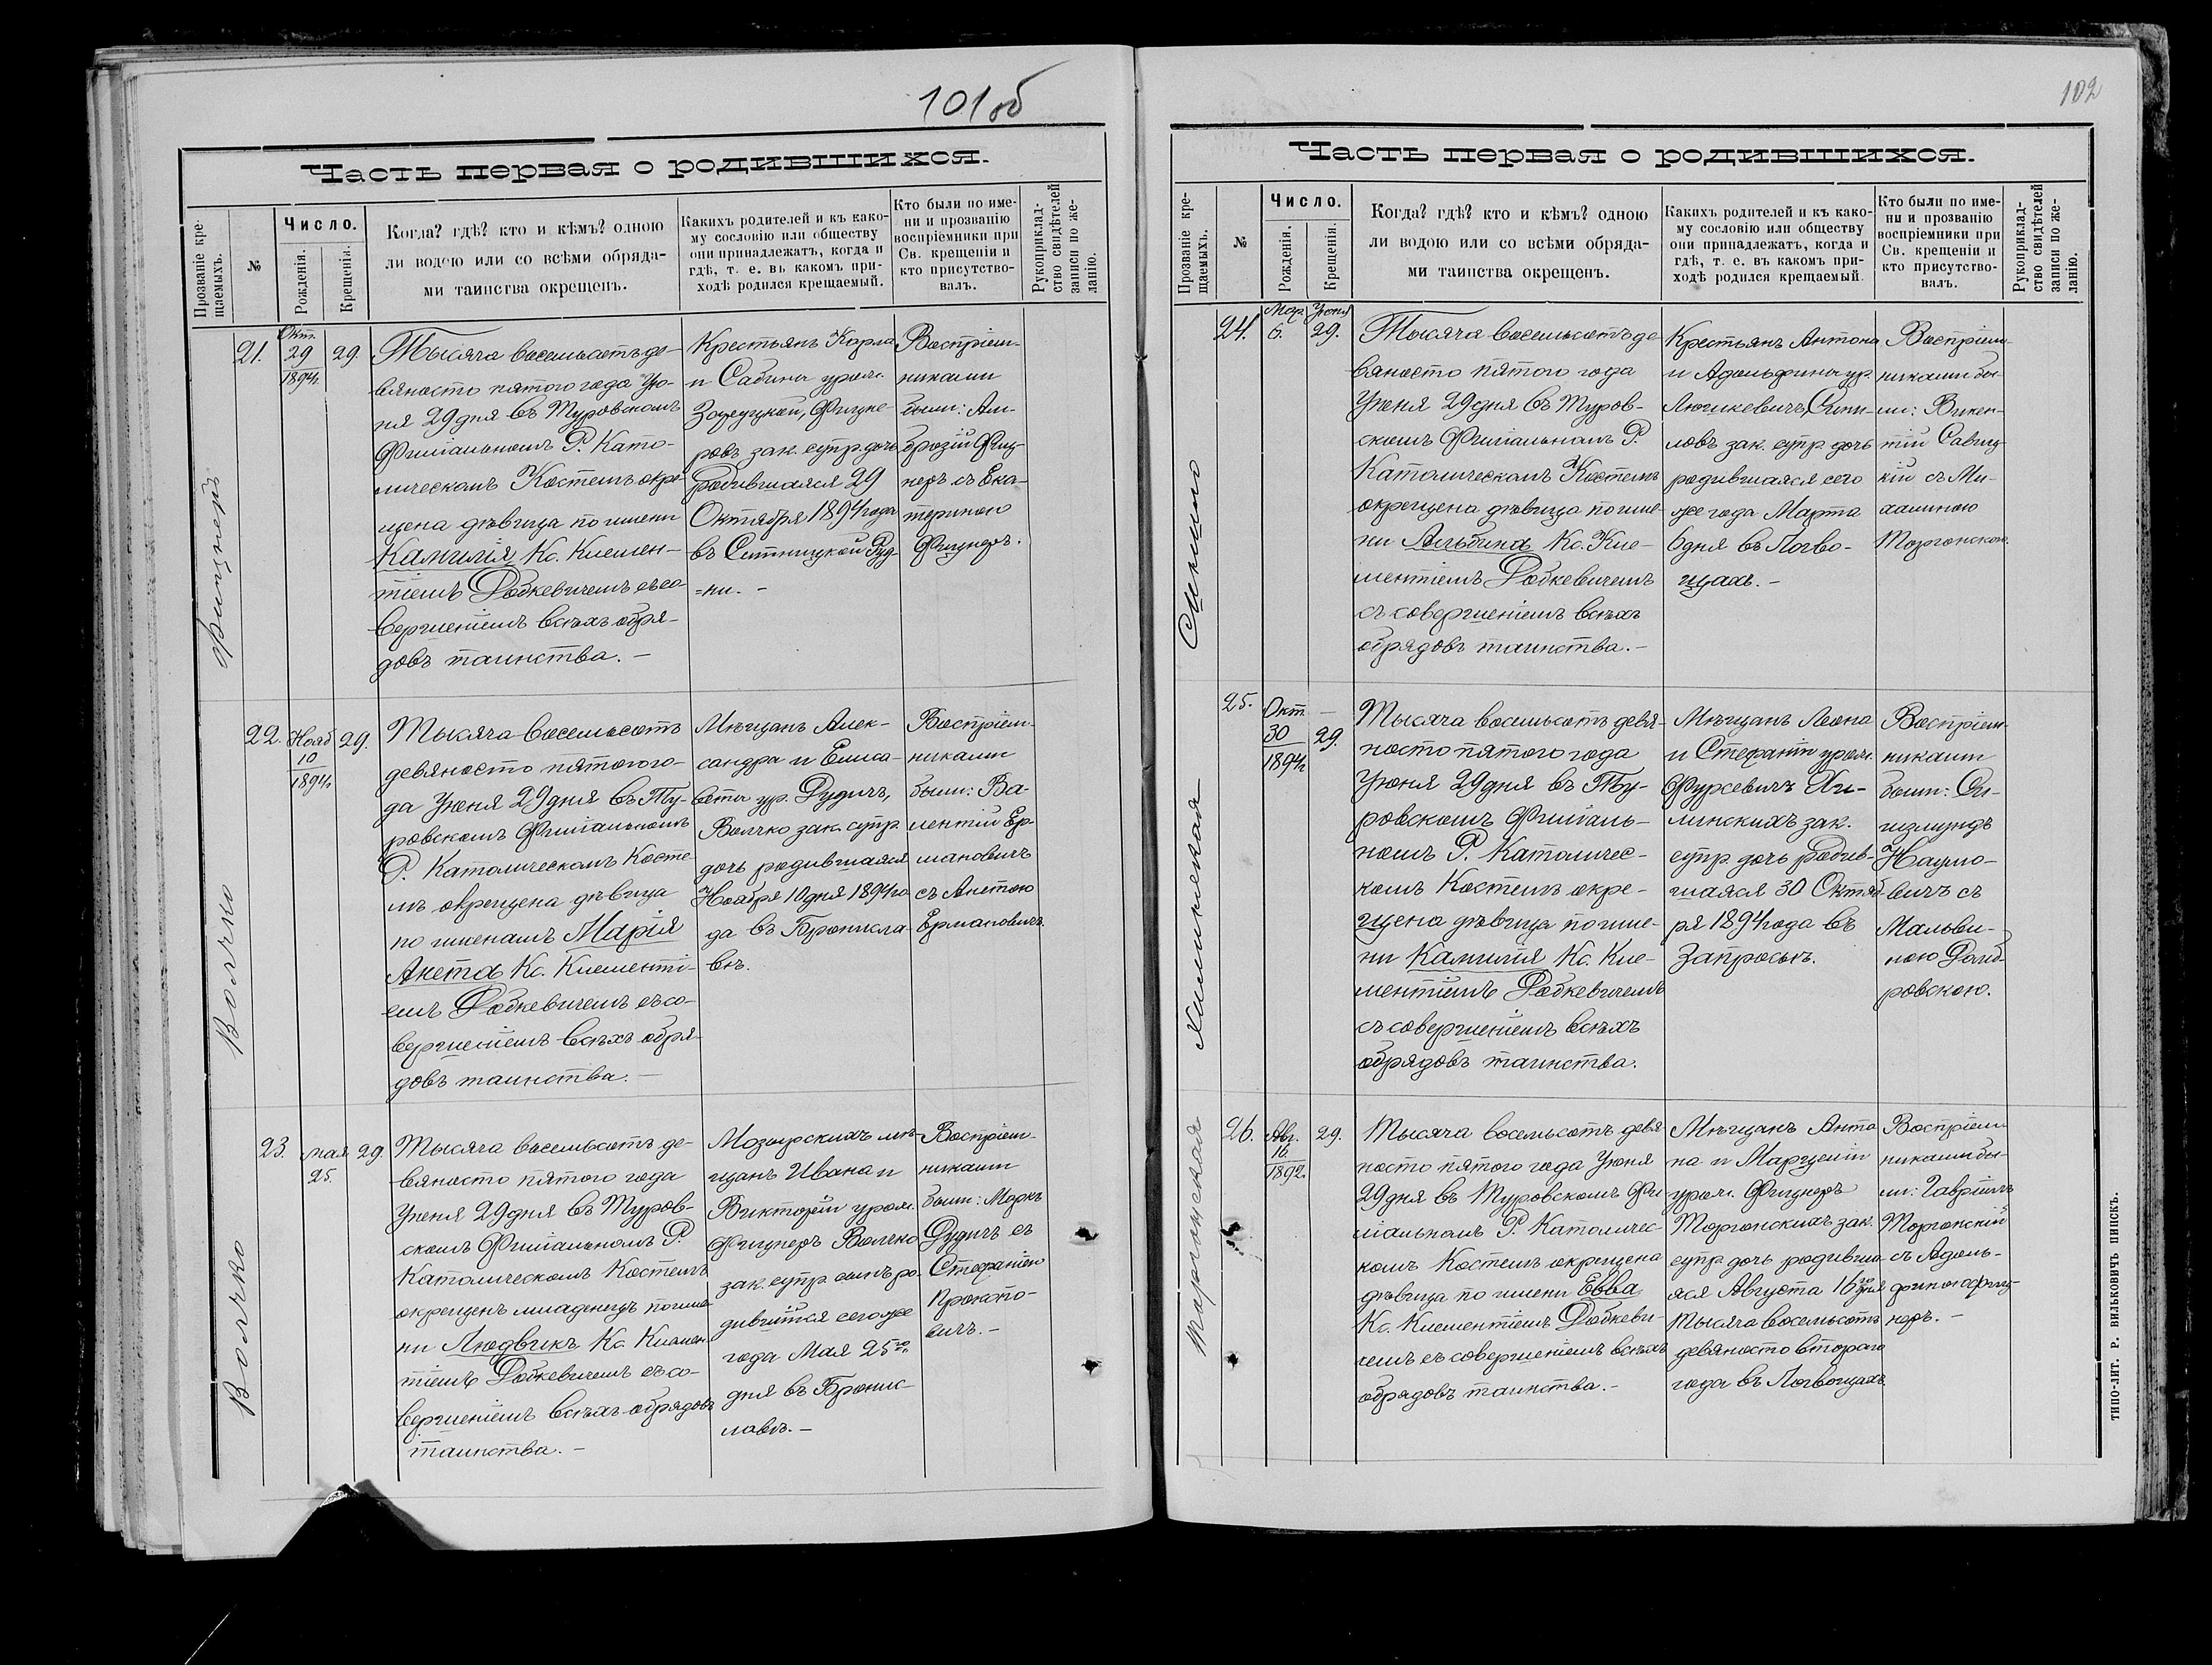 101 об
Часть первая о родившихся.
Прозваніе кре-
щаемыхъ.
№
Число.
Рожденія.
Крещенія.
Когда? гдѣ? кто и кѣмъ? одною
ли водою или со всѣми обряда-
ми таинства окрещенъ.
Какихъ родителей и къ како-
му сословію или обществу
они принадлежатъ, когда и
гдѣ, т. е. въ какомъ при-
ходѣ родился крещаемый.
Кто были по име-
ни и прозванію
воспріемники при
Св. крещеніи и
кто присутство-
валъ.
Рукоприклад-
ство свидѣтелей
записи по же-
ланію.
Фицнеръ
21.
Окт.
29
1894 г.
29.
Тысяча восемьсотъ де-
вяносто пятого года Ію-
ня 29 дня въ Туровскомъ
Филіальномъ Р. Като-
лическомъ Костелѣ окре-
щена дѣвица по имени
Камилія Кс. Клемен-
тіемъ Добкевичемъ съ со-
вершеніемъ всѣхъ обря-
довъ таинства. —
Крестьянъ Карла
и Сабины урож.
Фицне-
ровъ зак. супр. дочь
родившаяся 29
Октября 1894 года
въ Ситницкой Руд-
=ни. —
Воспріем-
никами
были: Ам-
брозій Фиц-
неръ съ Ека-
териною
Фицнеръ.
Волчко
22.
Нояб
10
1894 г.
29.
Тысяча восемьсотъ
девяносто пятого го-
да Іюня 29 дня въ Ту-
ровскомъ Филіальномъ
Р. Католическомъ Косте
лѣ окрещена дѣвица
по именамъ Марія
Анета Кс. Клементі-
емъ Добкевичемъ съ со-
вершеніемъ всѣхъ обря-
довъ таинства. —
Мѣщанъ Алек-
сандра и Елиса-
веты ур. Дудичъ,
Волчко зак. супр.
дочь родившаяся
Ноября 10 дня 1894 го
да въ Бронисла-
вѣ.
Воспріем-
никами
были: Ва-
лентій Ер-
мановичъ
съ Анетою
Ермановичъ.
Волчко
23.
мая
25.
29.
Тысяча восемьсотъ де-
вяносто пятого года
Іюня 29 дня въ Туров-
скомъ Филіальномъ Р.
Католическомъ Костелѣ
окрещенъ младенецъ по име
ни Людвикъ Кс. Клемен
тіемъ Добкевичемъ съ со-
вершеніемъ всѣхъ обрядовъ
таинства. —
Мозырскихъ мѣ-
щанъ Ивана и
Викторіи урож.
Фицнеръ Волчко
зак. супр. сынъ ро-
дившійся сего же
года Мая 25го
дня въ Бронис-
лавѣ. —
Воспріем-
никами
были: Маркъ
Дудичъ съ
Стефаніею
Прокопо-
вичъ. —
102
Часть первая о родившихся.
Прозваніе кре-
щаемыхъ.
№
Число.
Рожденія.
Крещенія.
Когда? гдѣ? кто и кѣмъ? одною
ли водою или со всѣми обряда-
ми таинства окрещенъ.
Какихъ родителей и къ како-
му сословію или обществу
они принадлежатъ, когда и
гдѣ, т. е. въ какомъ при-
ходѣ родился крещаемый.
Кто были по име-
ни и прозванію
воспріемники при
Св. крещеніи и
кто присутство-
валъ.
Рукоприклад-
ство свидѣтелей
записи по же-
ланію.
24.
Мар.
6.
Іюня
29.
Тысяча восемьсотъ де
вяносто пятого года
Іюня 29 дня въ Туров-
скомъ Филіальномъ Р.
Католическомъ Костелѣ
окрещена дѣвица по име-
ни Альбина Кс. Кле-
ментіемъ Добкевичемъ
съ совершеніемъ всѣхъ
обрядовъ таинства. —
Крестьянъ Антона
и Адольфины ур.
зак. супр. дочь
родившаяся сего
же года Марта
6 дня въ Логво-
щахъ. —
Воспріем-
никами бы-
ли: Викен-
тій Савиц-
кій съ Ми-
халиною
Торгонскою.
Хилинская
25.
Окт.
30
1894 г.
29.
Тысяча восемьсотъ девя-
носто пятого года
Іюня 29 дня въ Ту-
ровскомъ Филіаль-
номъ Р. Католичес-
комъ Костелѣ окре-
щена дѣвица по име-
ни Камилія Кс. Кле-
ментіемъ Добкевичемъ
съ совершеніемъ всѣхъ
обрядовъ таинства.
Мѣщанъ Леона
и Стефаніи урож.
Фурсевичъ Хи-
линскихъ зак.
супр. дочь родив-
шаяся 30 Октяб-
ря 1894 года въ
Запросьѣ.
Воспріем-
никами
были: Си-
гизмундъ
Наумо-
вичъ съ
Мальви-
ною Домб-
ровскою.
Торгонская
26.
Авг.
16
1892 г.
29.
Тысяча восемьсотъ девя
носто пятого года Іюня
29 дня въ Туровскомъ Фи
ліальномъ Р. Католичес-
комъ Костелѣ окрещена
дѣвица по имени Евва
Кс. Клементіемъ Добкеви-
чемъ съ совершеніемъ всѣхъ
обрядовъ таинства. —
Мѣщанъ Анто
на и Марцеліи
урож. Фицнеръ
Торгонскихъ зак.
супр. дочь родивша-
яся Августа 16го дня
тысяча восемьсотъ
девяносто второго
года въ Логвощахъ.
Воспріем-
никами бы-
ли: Гавріилъ
Торгонскій
съ Адоль-
финою Фиц-
неръ. —
ТИПО-ЛИТ. Р. ВИЛЬКОВИЧЪ ПИНСКЪ.